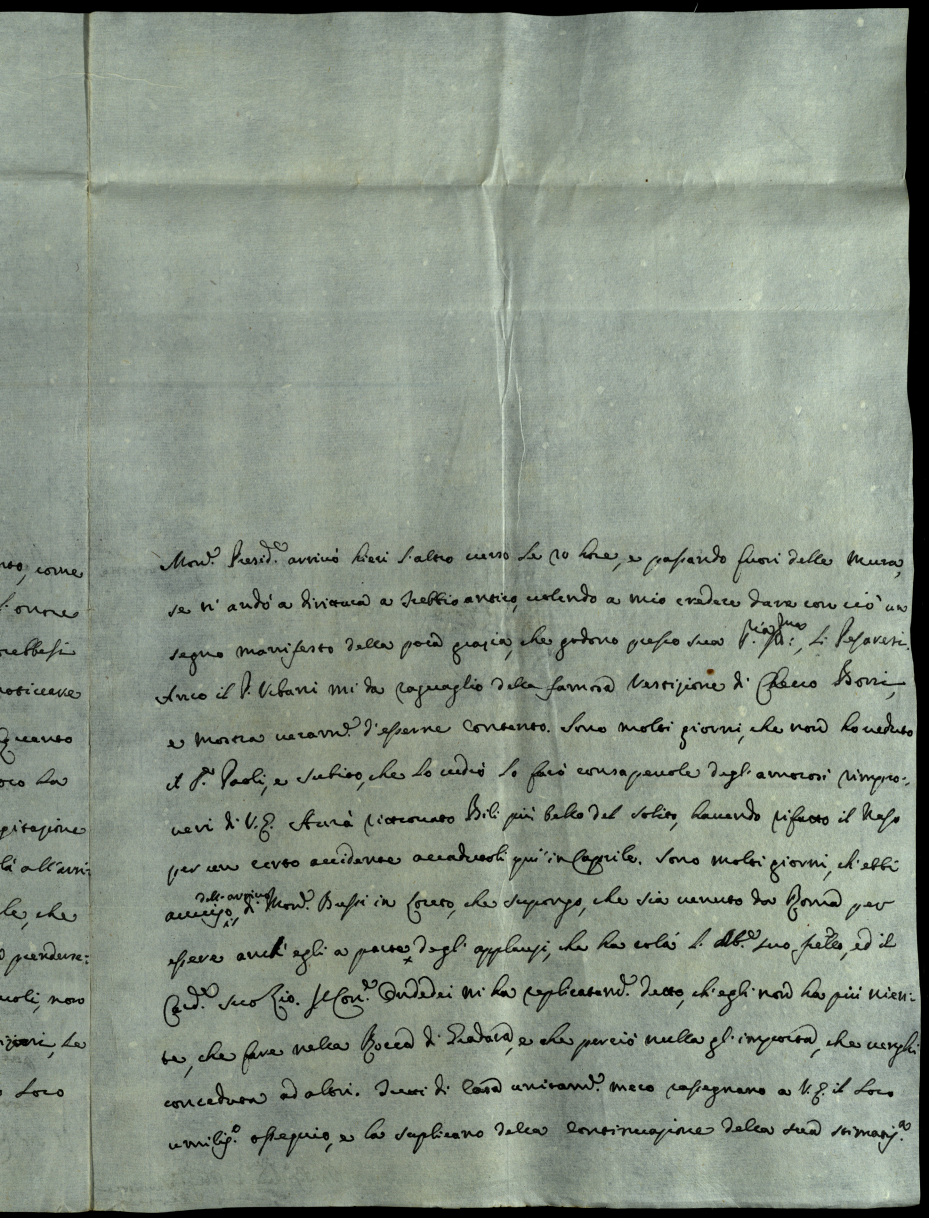 nto, come
l'onore
rebbesi
noticiare
Quanto
oco la
gitazione
là all'arri:
le, che
prenderse:
uoli, non
izioni, la
Loco
Mon.r Presid.e arrivò hieri l'altro verso le 20 hore, e passando fuori delle Mura,
se n'andò a dirittura a Trebbio antico, volendo a mio credere dare con ciò un
segno manifesto della poca grazia, che godono presso sua li Pesaresi.
Anco il P. Urbani mi da raguaglio della famosa Vestizione di Checco Boni,
e mostra veram.te d'esserne contento. Sono molti giorni, che non ho veduto
il P.re Paoli, e subito, che lo vedrò lo farò consapevole degli amorosi rimpro:
veri di V.E. Haurà ritrovato Bili più bello del solito, havendo rifatto il Naso
per un certo accidente accadutoli qui in Caprile. Sono molti giorni, ch'ebbi
dell'arrivo
avviso, di Mon.r Bussi in Loreto, che supongo, che sia venuto da Roma per
essere anch'egli a parte degli applausi, che ha colà l'Ab.e suo fratello, ed il
Card.e suo Zio. Il Con.te Ondedei mi ha replicatam.te detto, ch'egli non ha più nien:
te, che fare nella Rocca di Gradara, e che perciò nulla gl'importa, che venghi
conceduta ad altri. Tutti di Casa unitam.te meco rassegnano a V.E. il loro
umiliss.o ossequio, e la suplicano della continuazione della sua stimatiss.a